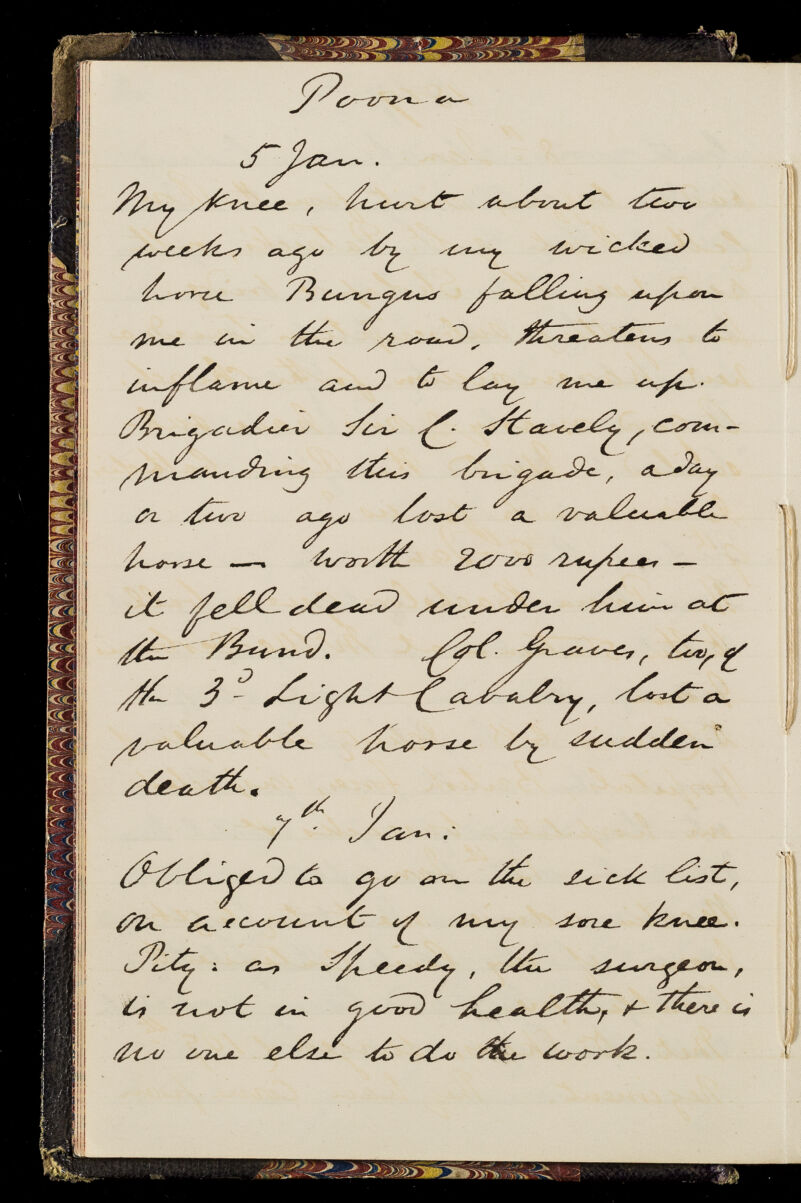 Poona
5 Jan.
My knee, hurt about two
weeks ago by my wicked
horse Bungus falling upon
me in the road, threatens to
inflame and to lay me up.
Brigadier Sir C. Stavely, com-
manding this brigade, a day
or two ago lost a valuable
horse — worth 2000 rupees —
it fell dead under him at
the Bund. Col. Graves, too, of
the 3d Light Cavalry, lost a
valuable horse by sudden
death.
7th. Jan:
Obliged to go on the sick list,
on account of my sore knee.
Pity: as Speedy, the surgeon,
is not in good health, & there is
no one else to do the work.